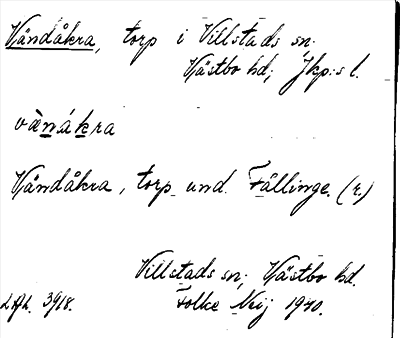 Vändåkra, torp i Villstads sn.
Västbo hd; Jkp:s l.
vänákra
Vändåkra, torp und. Fällinge. (r.)
Villstads sn; Västbo hd.
3918. Folke Neij 1940.